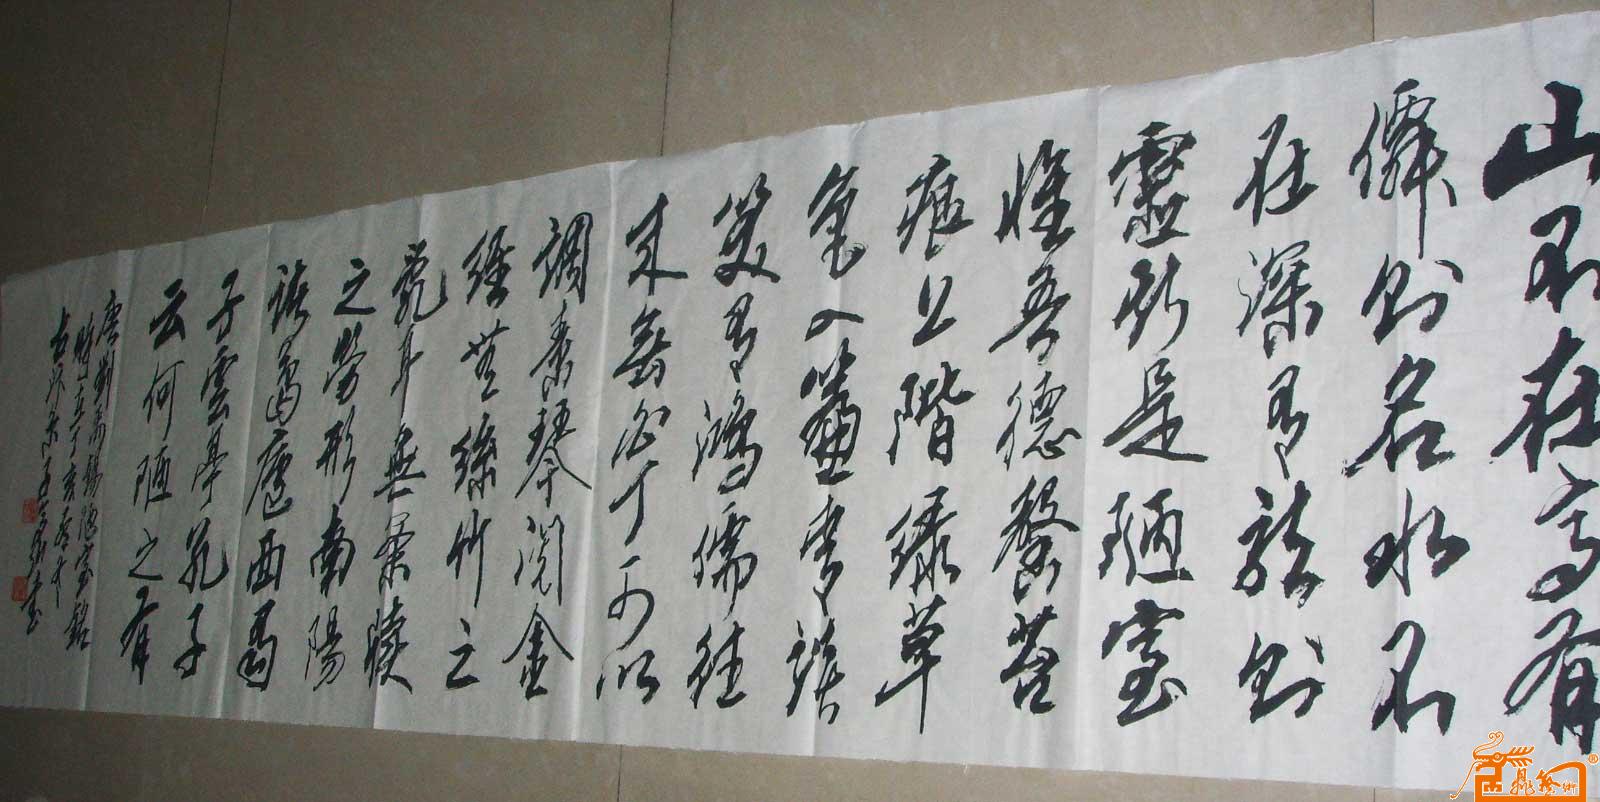 山不在高有
僊則名水不
在深有龍則
靈斯是陋室
惟吾德馨苔
痕上階綠草
色入簾青談
笑有鴻儒往
來無白丁可以
調素琴閱金
經無絲竹之
亂耳無案牘
之勞形南陽
諸葛廬西蜀
子雲亭孔子
云何陋之有
唐劉禹錫陋室銘
時在丁亥春